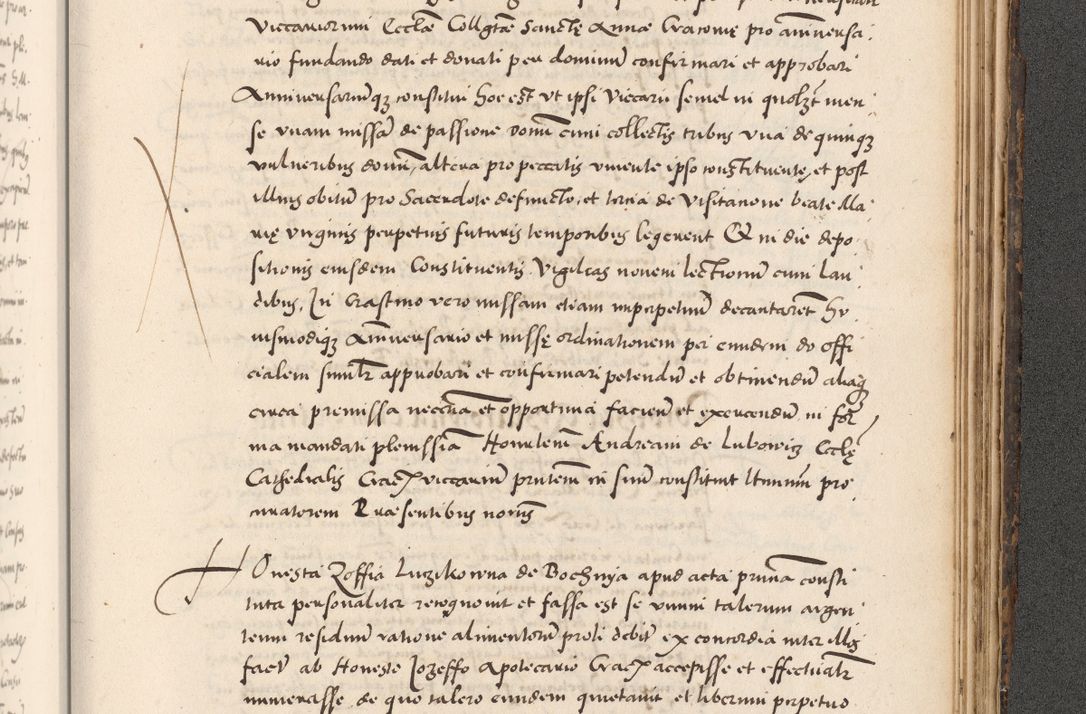 viccariorum Eccłæ Collgtæ Sanctę Annæ Cracovię pro anniversa,
rio fundando dati et donati per dominum confirmari et approbari
Anniversariumq constitui hoc est ut ipsi viccarii semel in quolzt men
se unam missā de passione domī cum collectis tribus una de quinq
vulneribus domī, altera pro peccatis vivente ipso constituente, et post
illius obitū pro Sacerdote defuncto, et tercia de visitatione beate Ma
rię virginis perpetuis futuris temporibus legerent Et in die depo
sitionis eiusdem Constituentis vigilias novem lectionū cum lau
dibus, In crastino vero missam etiam imperpetuū decantarent hu
iusmodiq anniversario et missę ordinationem per eundem do offi
cialem similr approbari et confirmari petendū et obtinendū aliaq
circa premissa necria et opportuna faciend et exercendū in for
ma mandati plenissīa Honrlem Andream de Lubowicz Eccłę
Cathedralis Crac viccarium prntem in suum constituit ltimum pro
curatorem Præsentibus noriis
Honesta Zoffia Luczikowna de Bochnija apud acta prnīa consti
tuta personaliter recognovit et fassa est se unum talerum argen
teum residuum ratione alimentorū proli debit ex concordia inter illos
fact ab Honesto Jozeffo Apotecario Crac accepisse et effectualr
numerasse de quo talero eundem quietavit et liberum perpetuo